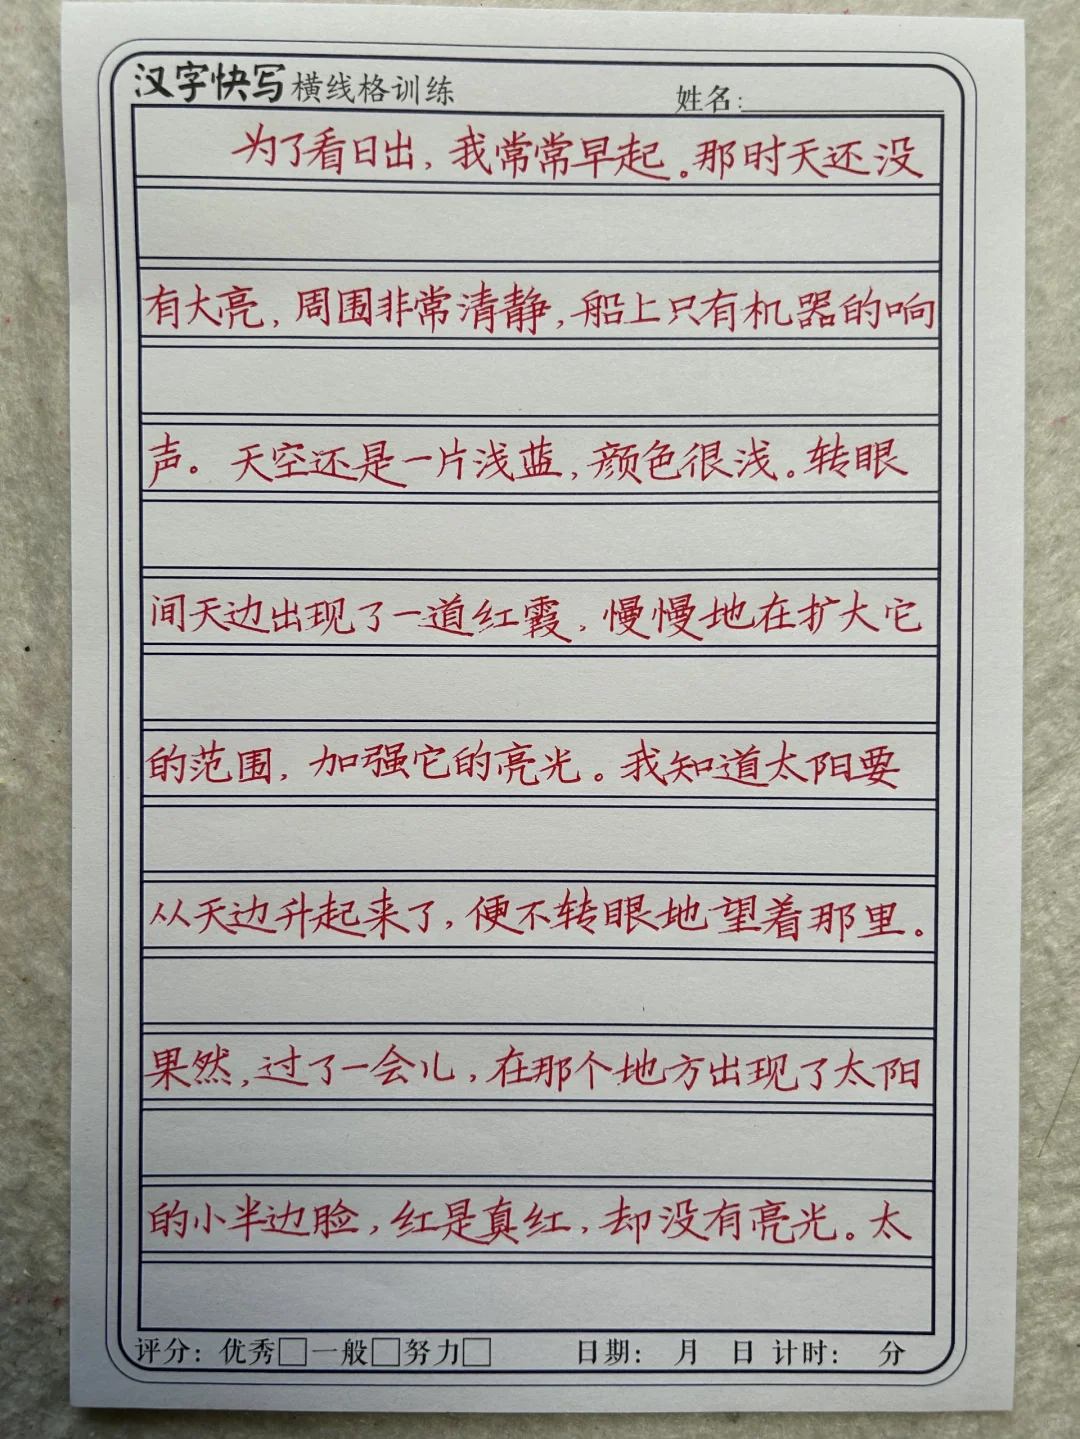 汉字快写 横线格训练 姓名:
为了看日出，我常常早起。那时天还没
有大亮，周围非常清静，船上只有机器的响
声。天空还是一片浅蓝，颜色很浅。转眼
间天边出现了一道红霞，慢慢地在扩大它
的范围，加强它的亮光。我知道太阳要
从天边升起来了，便不转眼地望着那里。
果然，过了一会儿，在那个地方出现了太阳
的小半边脸，红是真红，却没有亮光。太
评分：优秀□一般□努力□ 日期： 月 日 计时： 分